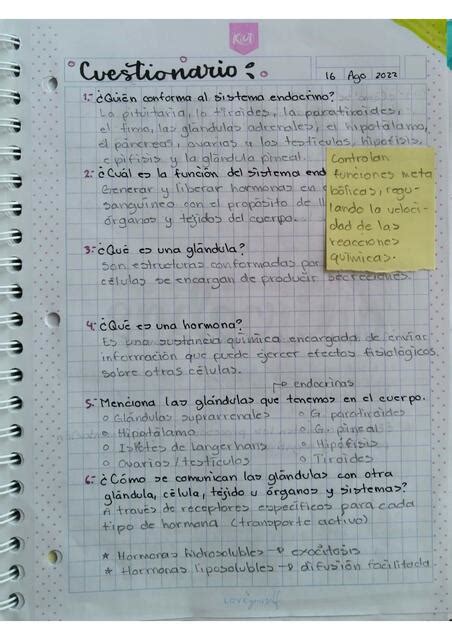 KIUT
Cuestionario:
16 Ago 2022
1.- ¿Quién conforma al sistema endocrino?
La pituitaria, la tiroides, la paratiroides,
el timo, las glándulas adrenales, el hipotálamo,
el páncreas, ovarios o los testículos, hipófisis,
epífisis y la glándula pineal.
2.- ¿Cuál es la función del sistema end
Generar y liberar hormonas en
sanguíneo con el propósito de
órganos y tejidos del cuerpo.
Controlan
funciones meta
bólicas, regu-
lando la veloci-
dad de las
reacciones
químicas.
3.- ¿Qué es una glándula?
Son estructuras conformadas por
células se encargan de producir secreciones.
4.- ¿Qué es una hormona?
Es una sustancia química encargada de enviar
información que puede ejercer efectos fisiológicos
sobre otras células.
endocrinas
5.- Menciona las glándulas que tenemos en el cuerpo.
o Glándulas suprarrenales o G. paratiroides
o Hipotálamo o G. pineal
o Islotes de Langerhans o Hipófisis
o Ovarios / testículos o Tiroides
6.- ¿Cómo se comunican las glándulas con otra
glándula, célula, tejido u órganos y sistemas?
A través de receptores específicos para cada
tipo de hormona (transporte activo)
* Hormonas hidrosolubles → exocitosis
* Hormonas liposolubles → difusión facilitada